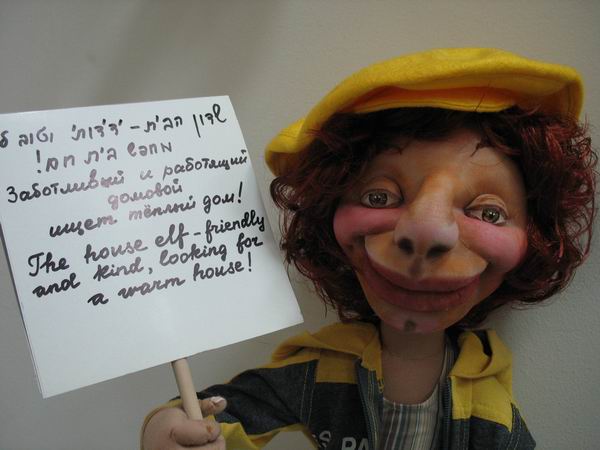 שדון הבית - ידידותי וטוב ל
מחפש בית חם!
Заботливый и работящий
домовой
ищет тёплый дом!
The house elf-friendly
and kind, looking for
a warm house!